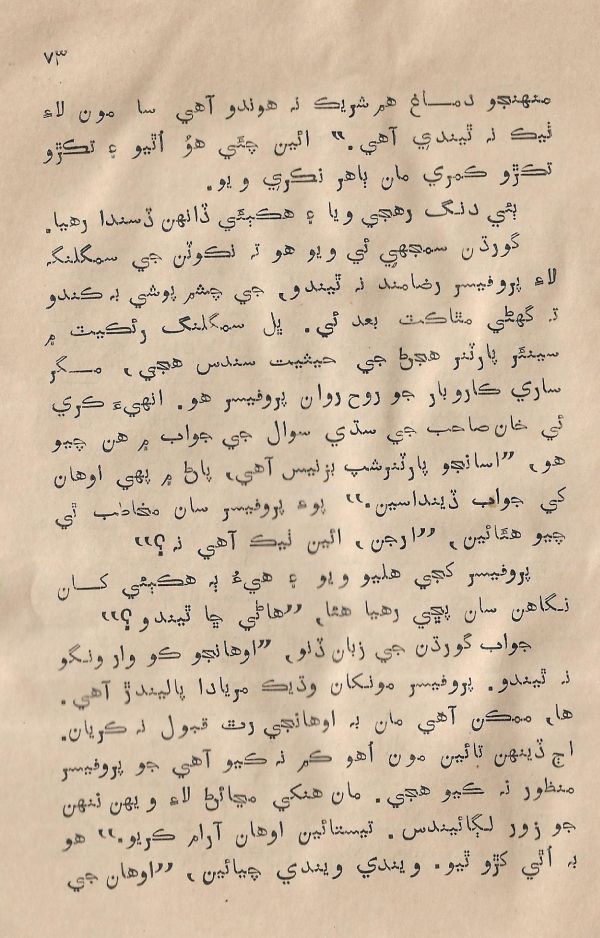 ٧٣
منهنجو دماغ هم شريڪ نہ هوندو آهي سا مون لاءِ
ٺيڪ نہ ٿيندي آهي.“ ائين چئي هوُ اُٿيو ۽ تڪڙو
تڪڙو ڪمري مان ٻاهر نڪري ويو.
ٻئي دنگ رهجي ويا ۽ هڪٻئي ڏانهن ڏسندا رهيا.
گورڌن سمجهي ئي ويو هو تہ نڪوٽن جي سمگلنگ
لاءِ پروفيسر رضامند نہ ٿيندو، جي چشم پوشي بہ ڪندو
تہ گهڻي مٿاڪٽ بعد ئي. ڀل سمگلنگ رئڪيٽ ۾
سينئر پارٽنر هجڻ جي حيثيت سندس هجي، مگر
ساري ڪاروبار جو روح روان پروفيسر هو. انهيءَ ڪري
ئي خان صاحب جي سڌي سوال جي جواب ۾ هن چيو
هو، ”اسانجو پارٽنرشپ بزنيس آهي، پاڻ ۾ پهي اوهان
کي جواب ڏينداسين.“ پوءِ پروفيسر سان مخاطب ٿي
چيو هئائين، ”ارجن، ائين ٺيڪ آهي نہ؟“
پروفيسر کڄي هليو ويو ۽ هيءُ ٻہ هڪٻئي کان
نگاهن سان پڇي رهيا هئا، ”هاڻي ڇا ٿيندو؟“
جواب گورڌن جي زبان ڏنو، ”اوهانجو ڪو وار ونگو
نہ ٿيندو. پروفيسر مونکان وڌيڪ مريادا پاليندڙ آهي.
ها، ممڪن آهي مان بہ اوهانجي رٿ قبول نہ ڪريان.
اڄ ڏينهن تائين مون اُهو ڪم نہ ڪيو آهي جو پروفيسر
منظور نہ ڪيو هجي. مان هنکي مڃائڻ لاءِ ويهن ننهن
جو زور لڳائيندس. تيستائين اوهان آرام ڪريو.“ هو
بہ اُٿي کڙو ٿيو. ويندي ويندي چيائين، ”اوهان جي